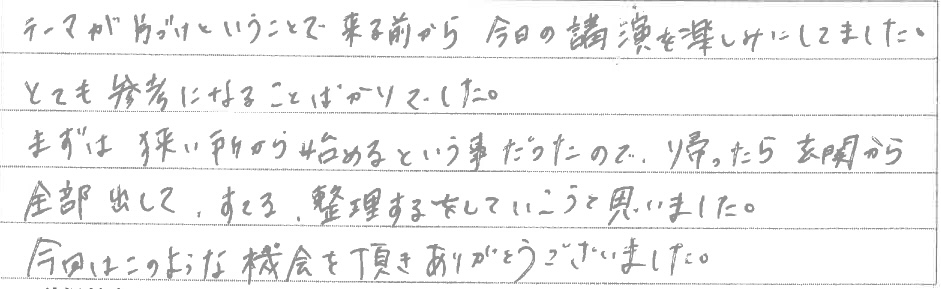 テーマが片づけということで来る前から今日の講演を楽しみにしてました。
とても参考になることばかりでした。
まずは狭い所から始めるという事だったので、帰ったら玄関から
全部出して、すてる、整理するをしていこうと思いました。
今回はこのような機会を頂きありがとうございました。